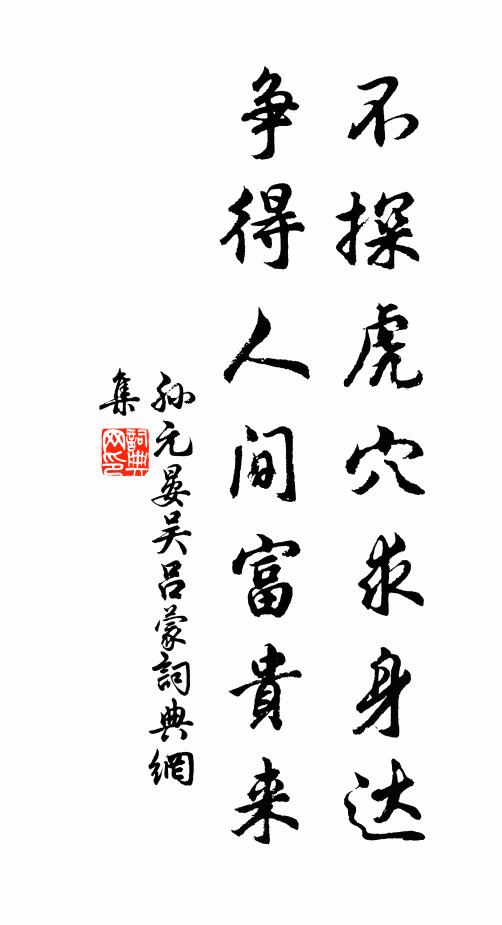 不探虎穴求身达
争得人间富貴来
孙元晏吴吕蒙詞典網
集
詞典网印